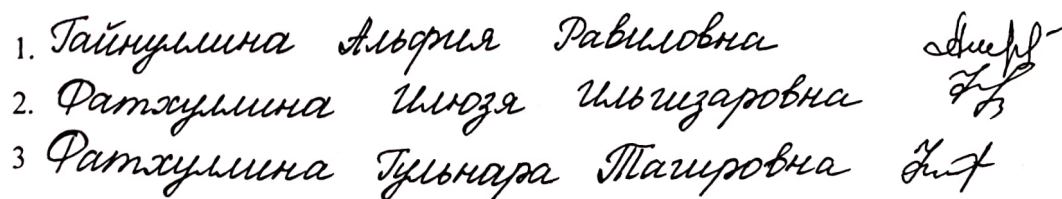 1. Гайнуллина Альфия Равиловна
2. Фатхуллина Илюзя Ильгизаровна
3 Фатхуллина Гульнара Тагировна